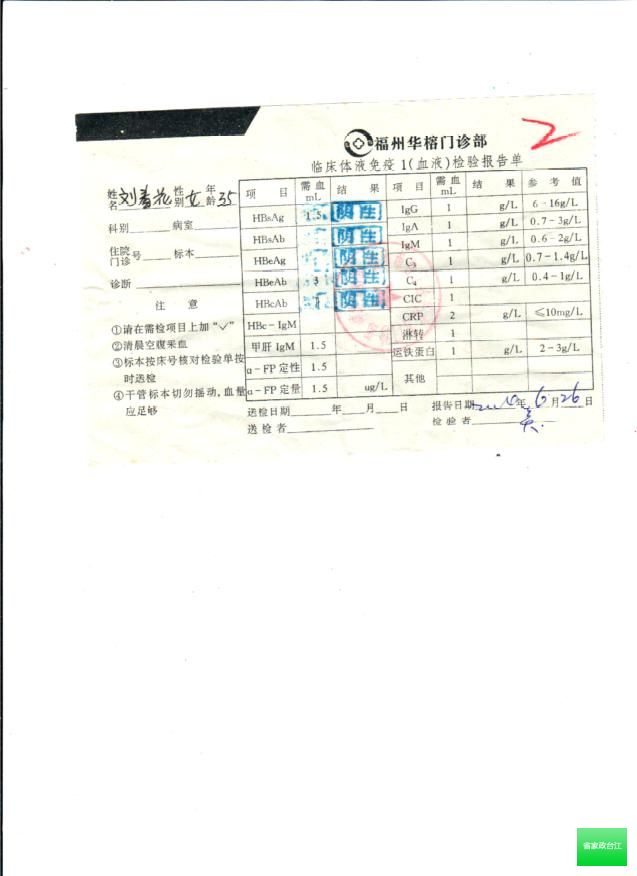 福州华榕门诊部
2
临床体液免疫1(血液)检验报告单
姓名 刘春花 性别 女 年龄 35
科别 病室
住院门诊号 标本
诊断
注 意
①请在需检项目上加“✓”
②清晨空腹采血
③标本按床号核对检验单按
时送检
④干管标本切勿摇动,血量
应足够
项 目 需血mL 结 果 项 目 需血mL 结 果 参 考 值
HBsAg 1.5 阴性 IgG 1 g/L 6-16g/L
HBsAb 阴性 IgA 1 g/L 0.7-3g/L
HBeAg 阴性 IgM 1 g/L 0.6-2g/L
HBeAb 阴性 C3 1 g/L 0.7-1.4g/L
HBcAb 阴性 C4 1 g/L 0.4-1g/L
HBc-IgM CIC 1
甲肝 IgM 1.5 CRP 2 g/L ≤10mg/L
α-FP 定性 1.5 淋转 1
α-FP 定量 1.5 ug/L 运铁蛋白 1 g/L 2-3g/L
其他
送检日期 年 月 日 报告日期 年 6 月 26 日
送检者 检验者
省家政台江